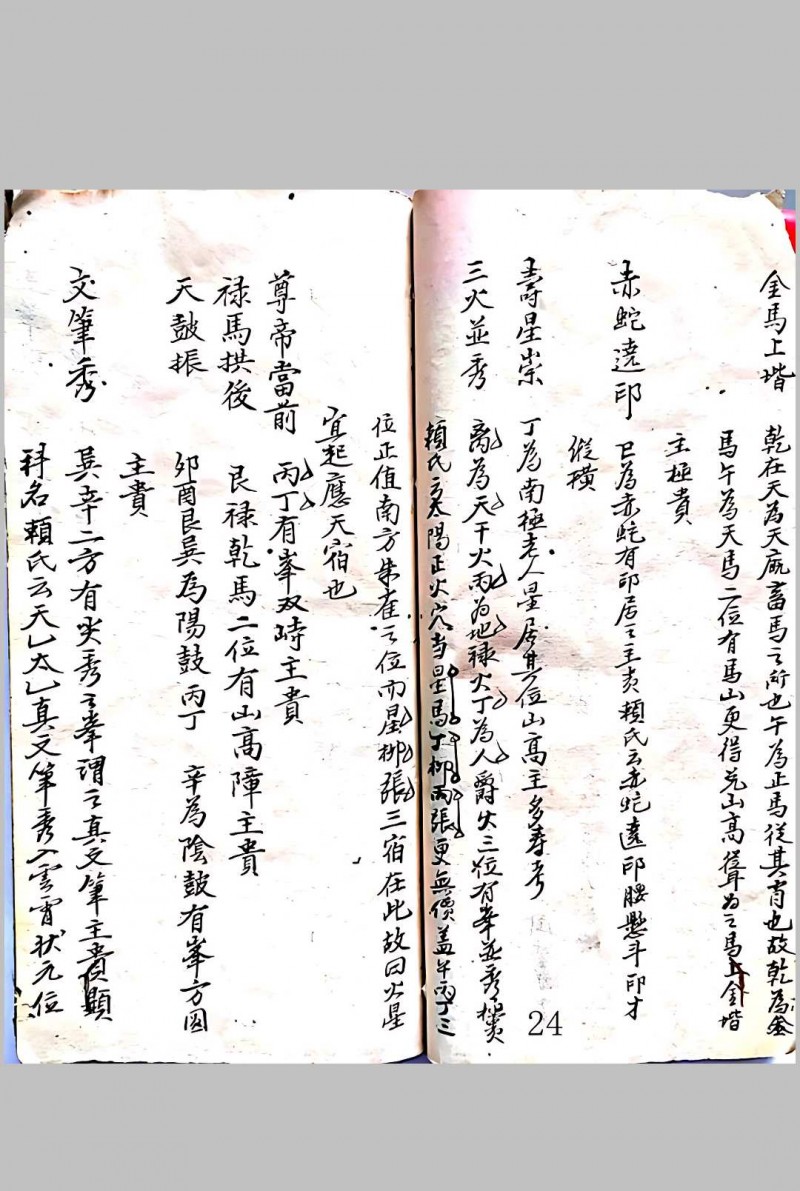 金馬上堦 乾在天為天厩畜馬之所也午為正馬從其肖也故乾為金
馬午為天馬二位有馬山更得兌山高聳为之馬上金堦
主極貴
赤蛇遶印 巳為赤蛇有印居之主贵賴氏云赤蛇遶印腰懸斗印才
縱橫
壽星崇 丁為南極老人星居其位山高主多寿考
三火並秀 离為天干火丙为地禄火丁為人爵火三位有峯並秀極贵
賴氏云太陽正火穴当星馬丁柳丙張更無價盖午丙丁三
位正值南方朱雀之位而星柳張三宿在此故曰火星
宜起應天宿也
尊帝當前 丙丁有峯双峙主貴
禄馬拱後 艮禄乾馬二位有山高障主貴
天鼓振 卯酉艮巽為陽鼓丙丁 辛為陰鼓有峯方圆
主貴
文筆秀 巽辛二方有尖秀之峯谓之真文筆主貴顯
科名賴氏云天乙太乙真文筆秀入雲霄状元位
24